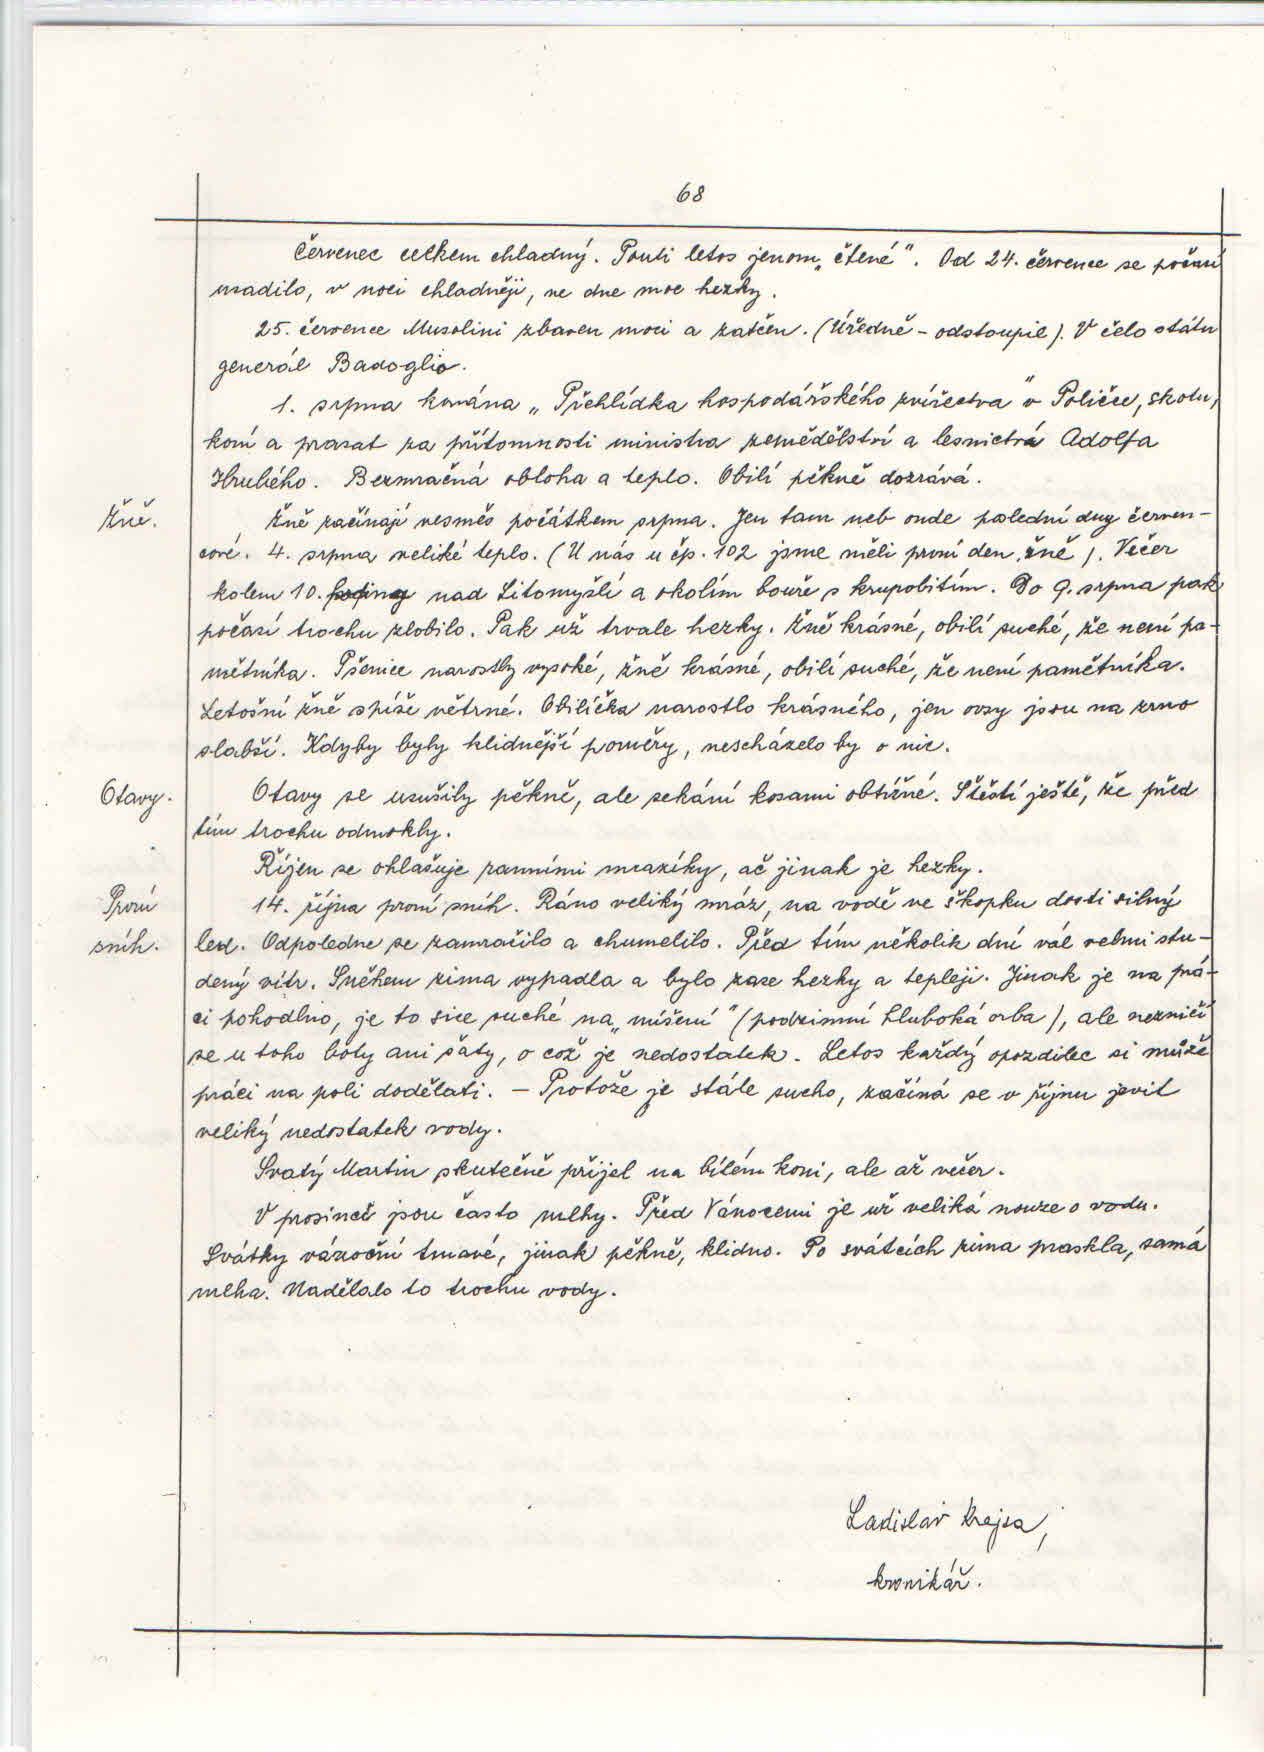 68
Červenec celkem chladný. Pouti letos jenom „čtené". Od 24. července se počasí
usadilo, v noci chladněji, ve dne moc hezky.
25. července Musolini zbaven moci a zatčen. (Úředně - odstoupil). V čelo státu
generál Badoglio.
1. srpna konána „Přehlídka hospodářského zvířectva" v Poličce, skotu,
koní a prasat za přítomnosti ministra zemědělství a lesnictví Adolfa
Hrubého. Bezmračná obloha a teplo. Obilí pěkně dozrává.
Žně.
Žně začínají vesměs počátkem srpna. Jen tam neb onde poslední dny červen-
cové. 4. srpna veliké teplo. (U nás u čp. 102 jsme měli první den žně). Večer
kolem 10. hodiny nad Litomyšlí a okolím bouře s krupobitím. Do 9. srpna pak
počasí trochu zlobilo. Pak už trvale hezky. Žně krásné, obilí suché, že není pa-
mětníka. Pšenice narostly vysoké, žně krásné, obilí suché, že není pamětníka.
Letošní žně spíše větrné. Obilíčka narostlo krásného, jen ovsy jsou na zrno
slabší. Kdyby byly klidnější poměry, nescházelo by o nic.
Otavy.
Otavy se usušily pěkně, ale sekání kosami obtížné. Štěstí ještě, že před
tím trochu odmokly.
Říjen se ohlašuje ranními mrazíky, ač jinak je hezky.
První
sníh.
14. října první sníh. Ráno veliký mráz, na vodě ve škopku dosti silný
led. Odpoledne se zamračilo a chumelilo. Před tím několik dní vál velmi stu-
dený vítr. Sněhem zima vypadla a bylo zase hezky a tepleji. Jinak je na prá-
ci pohodlno, je to sice suché na „míšení" (podzimní hluboká orba), ale nezničí
se u toho boty ani šaty, o což je nedostatek. Letos každý opozdilec si může
práci na poli dodělati. - Protože je stále sucho, začíná se v říjnu jevit
veliký nedostatek vody.
Svatý Martin skutečně přijel na bílém koni, ale až večer.
V prosinci jsou často mlhy. Před Vánocemi je už veliká nouze o vodu.
Svátky vánoční tmavé, jinak pěkně, klidno. Po svátcích zima praskla, samá
mlha. Nadělalo to trochu vody.
Ladislav Krejsa,
kronikář.